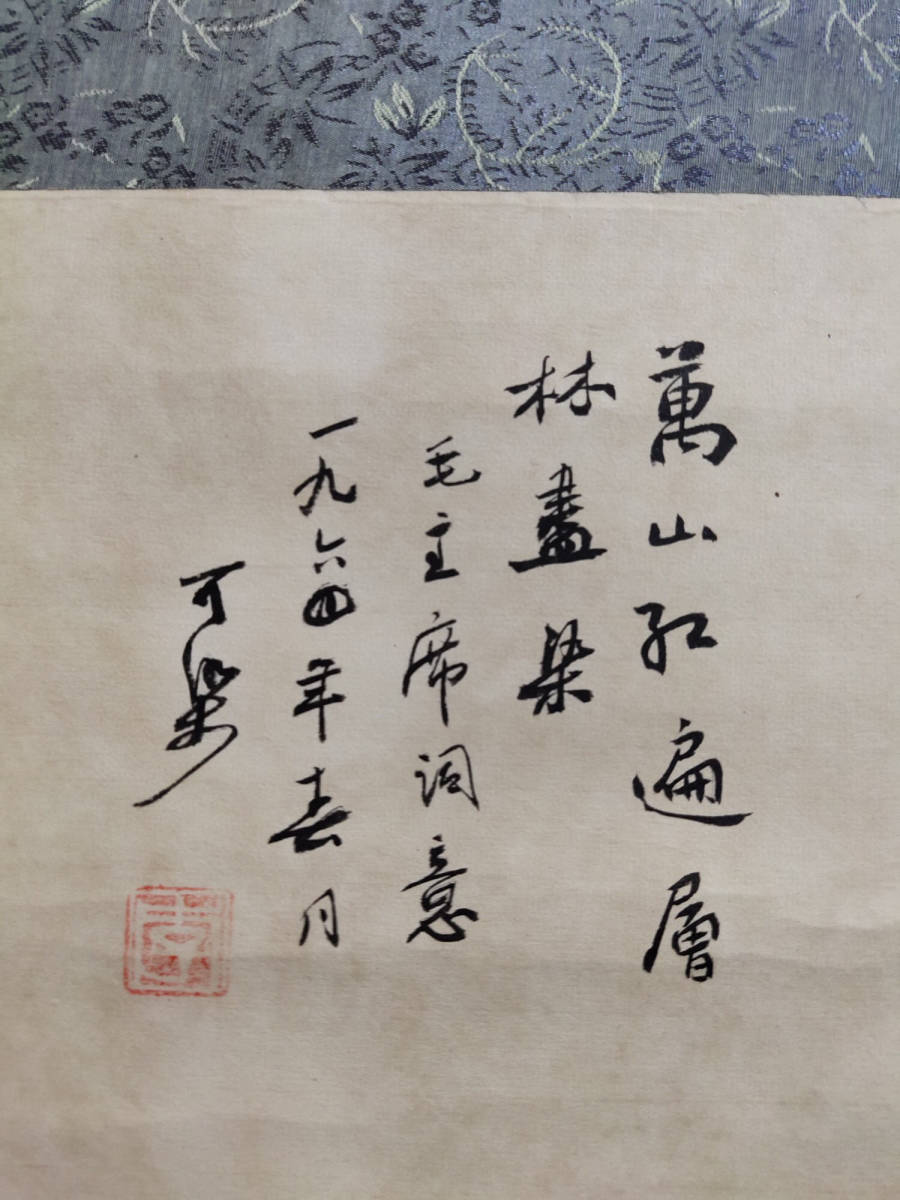 萬山紅遍層
林盡染
毛主席詞意
一九六四年春月
可染